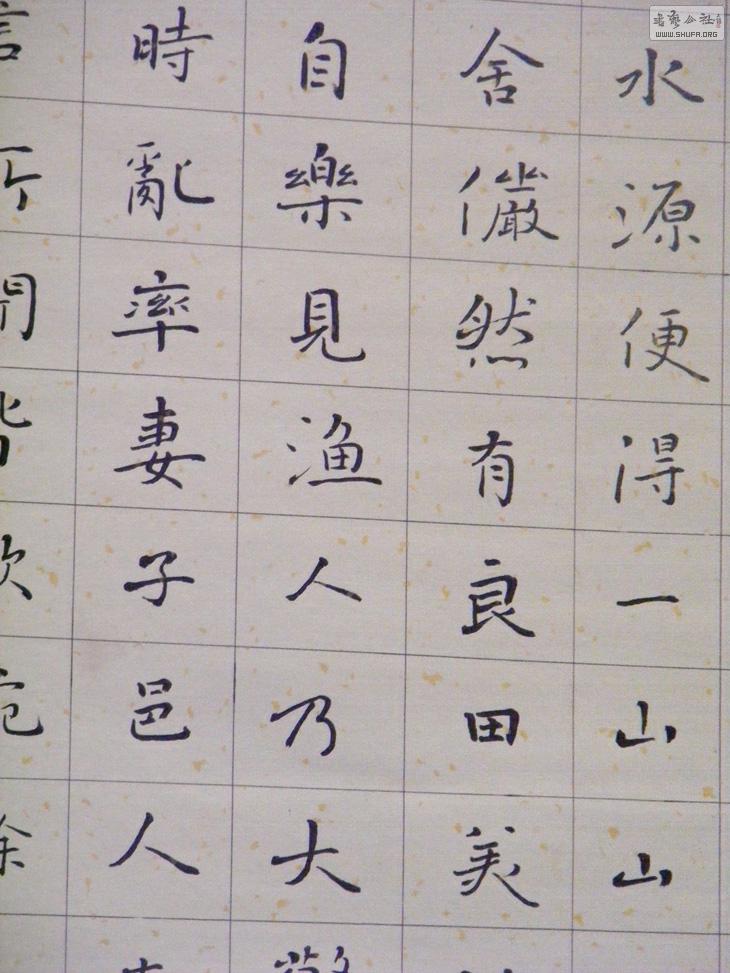 水源便得一山山
舍儼然有良田美
自樂見漁人乃大
時亂率妻子邑人
言所聞皆歎
書藝公社
WWW.SHUFA.ORG